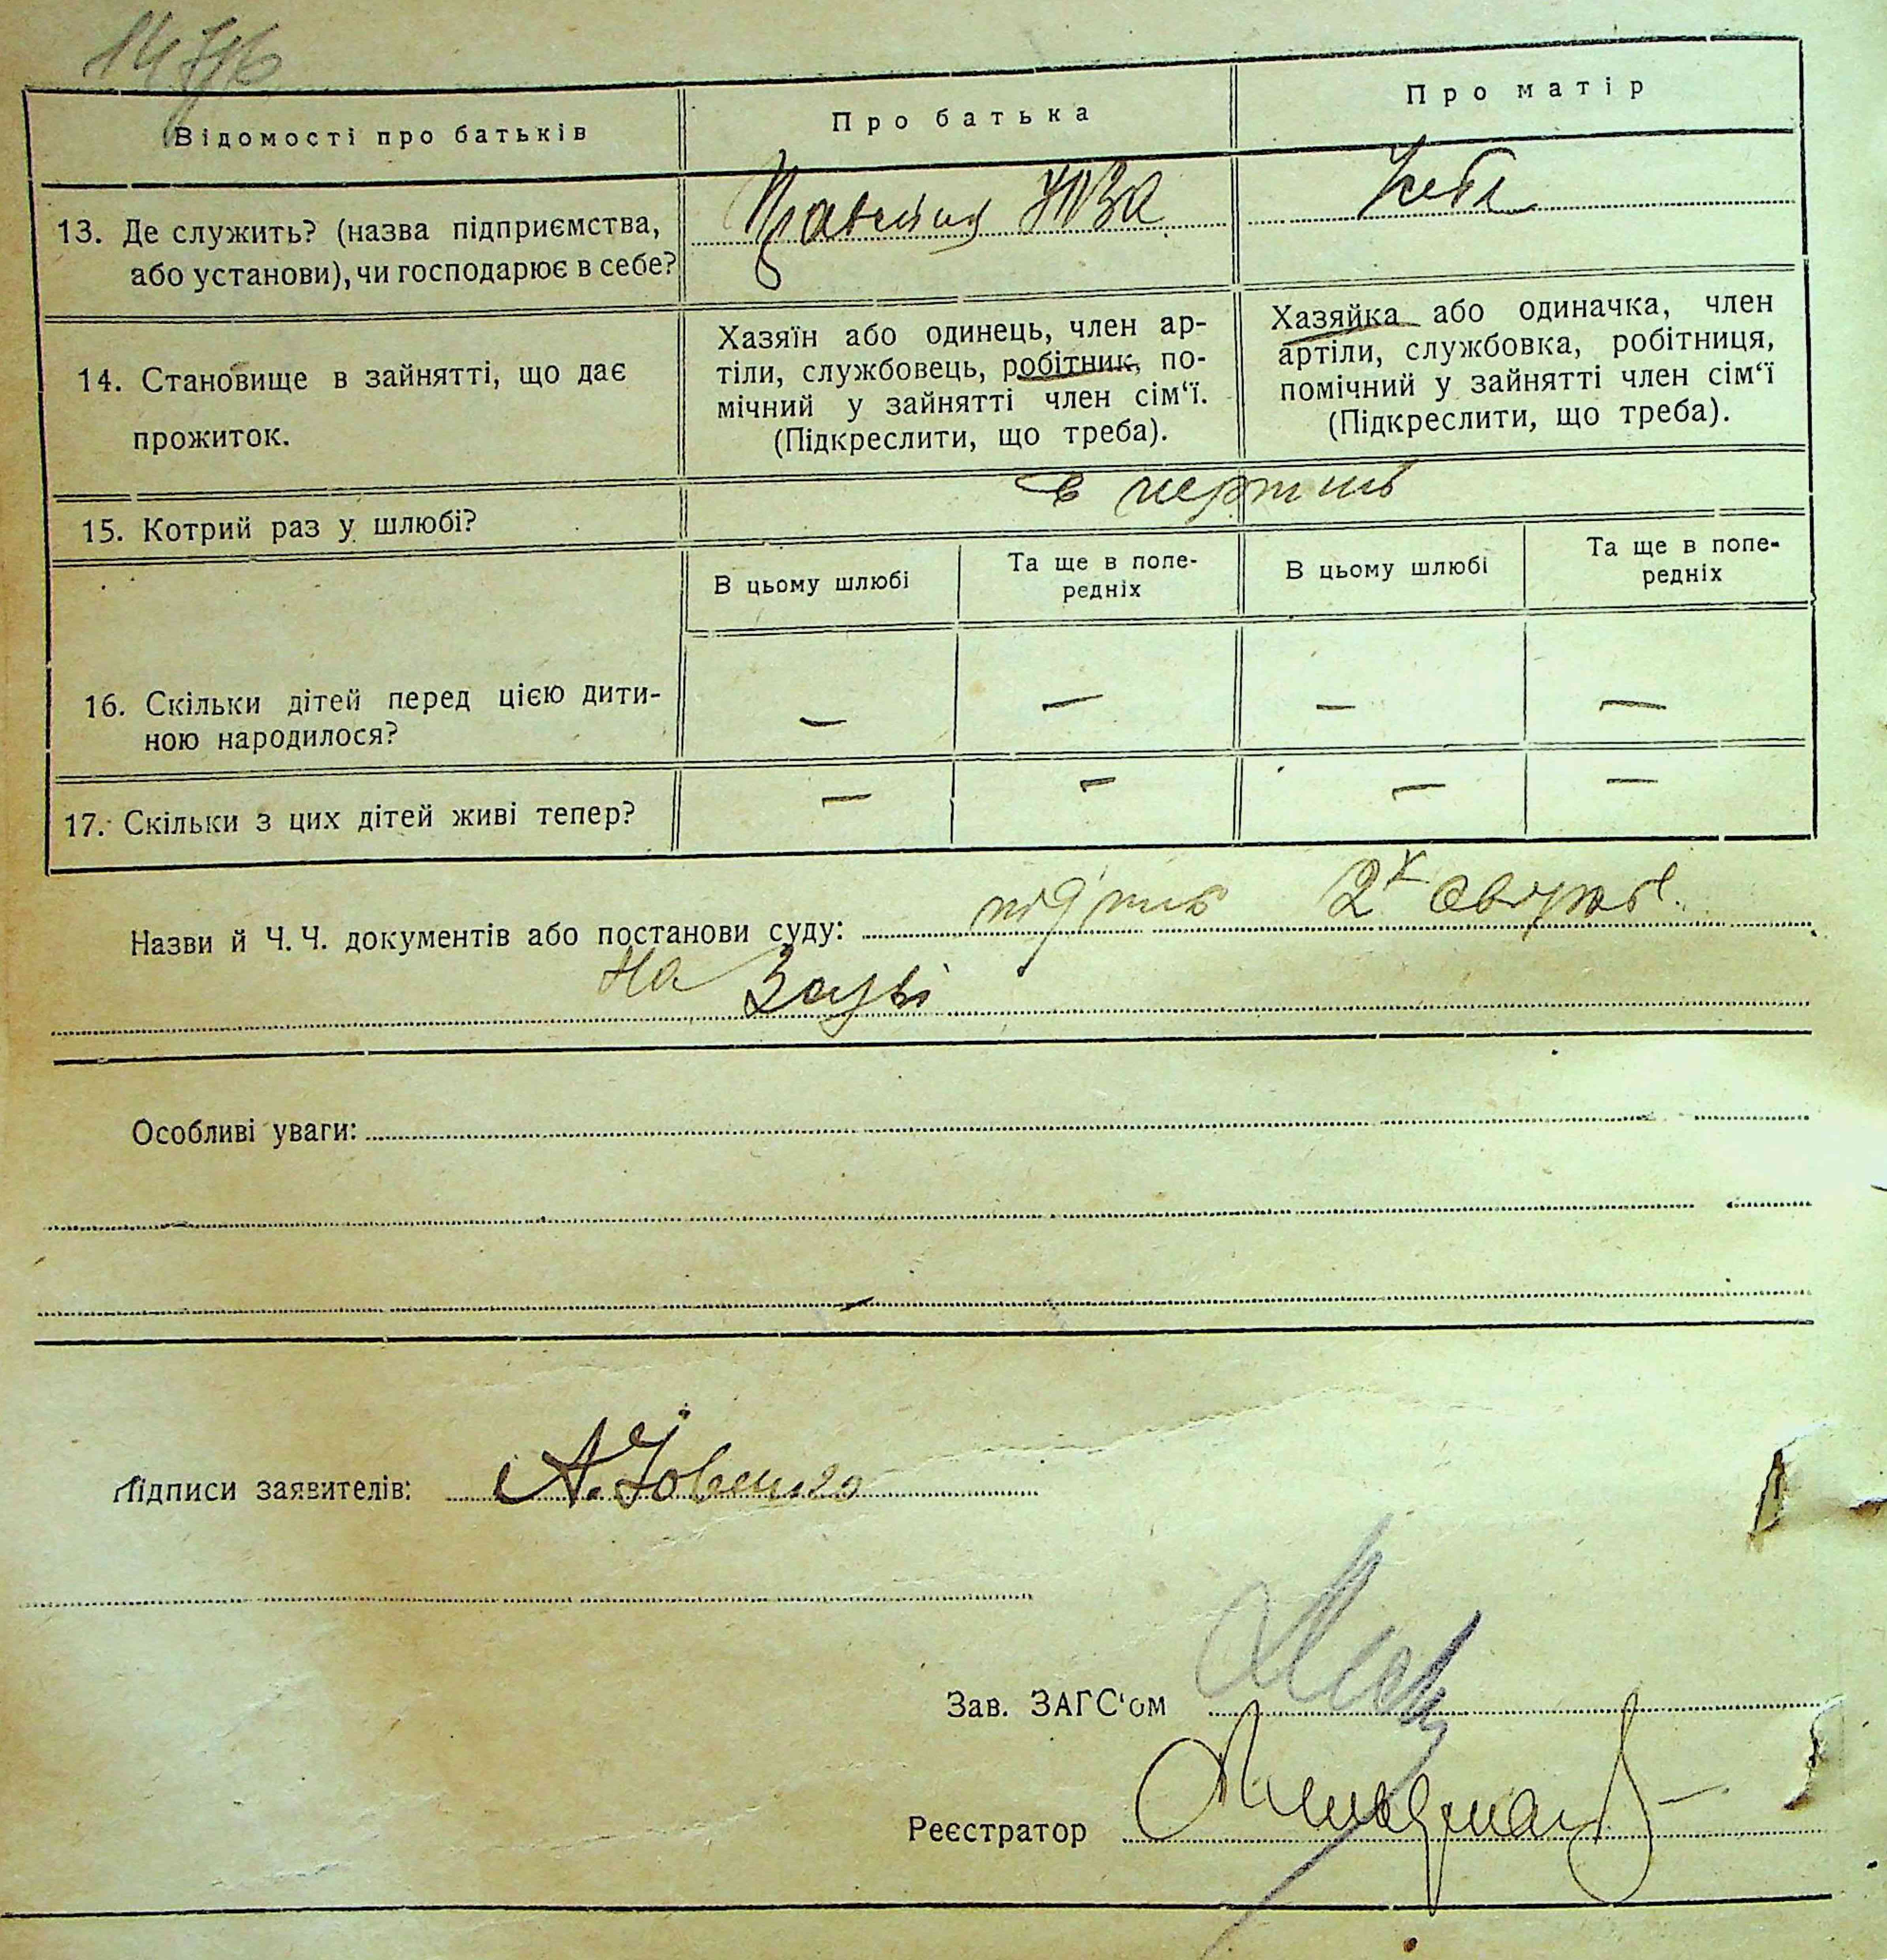 Відомості про батьків
Про батька
Про матір
13. Де служить? (назва підприємства,
або установи), чи господарює в себе?
14. Становище в зайнятті, що дає
прожиток.
Хазяїн або одинець, член ар-
тіли, службовець, робітник, по-
мічний у зайнятті член сім‘ї.
(Підкреслити, що треба).
Хазяйка або одиначка, член
артіли, службовка, робітниця,
помічний у зайнятті член сім‘ї
(Підкреслити, що треба).
15. Котрий раз у шлюбі?
В цьому шлюбі
Та ще в попе-
редніх
В цьому шлюбі
Та ще в попе-
редніх
16. Скільки дітей перед цією дити-
ною народилося?
— — — —
17. Скільки з цих дітей живі тепер?
— — — —
Назви й Ч. Ч. документів або постанови суду: 2х
на
Особливі уваги:
Підписи заявителів: А.
Зав. ЗАГС‘ом
Реєстратор